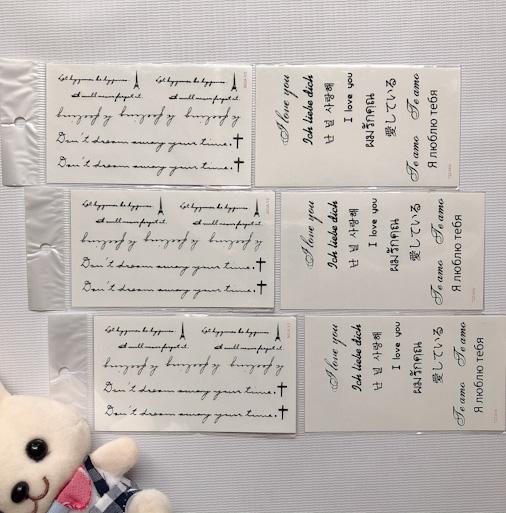 Let bygones be bygones. Let bygones be bygones.
I will never forget it. I will never forget it.
Don't dream away your time.
Don't dream away your time.
I love you
Ich liebe dich
난 널 사랑해
I love you
ผมรักคุณ
愛している
Te amo Te amo
Я люблю тебя
Let bygones be bygones. Let bygones be bygones.
I will never forget it. I will never forget it.
Don't dream away your time.
Don't dream away your time.
I love you
Ich liebe dich
난 널 사랑해
I love you
ผมรักคุณ
愛している
Te amo Te amo
Я люблю тебя
Let bygones be bygones. Let bygones be bygones.
I will never forget it. I will never forget it.
Don't dream away your time.
Don't dream away your time.
I love you
Ich liebe dich
난 널 사랑해
I love you
ผมรักคุณ
愛している
Te amo Te amo
Я люблю тебя